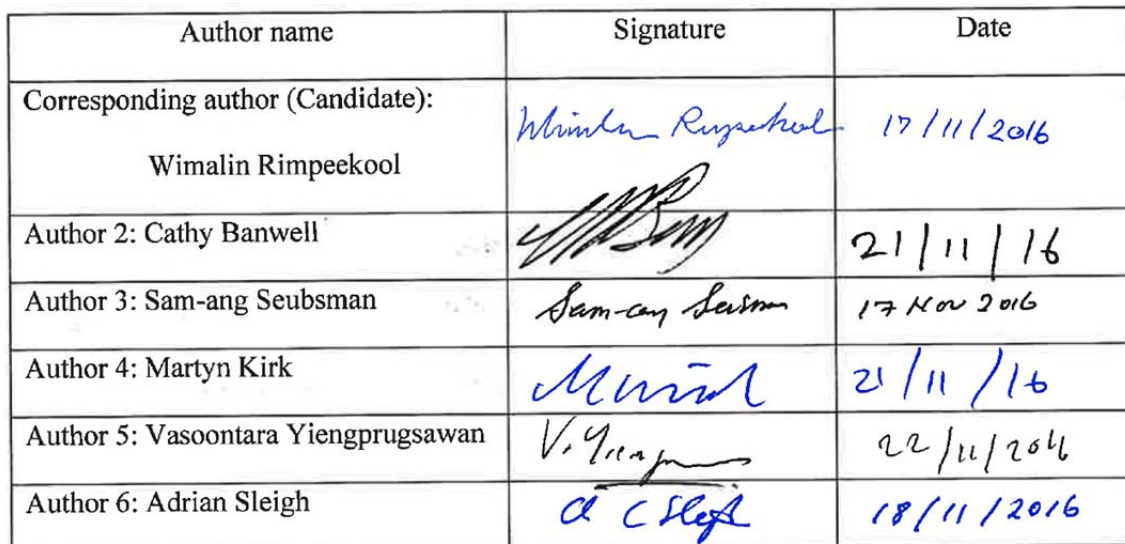 Author name Signature Date
Corresponding author (Candidate):
Wimalin Rimpeekool 17/11/2016
Author 2: Cathy Banwell 21/11/16
Author 3: Sam-ang Seubsman Sam-ang 17 Nov 2016
Author 4: Martyn Kirk 21/11/16
Author 5: Vasoontara Yiengprugsawan 22/11/2016
Author 6: Adrian Sleigh A C Sleigh 18/11/2016